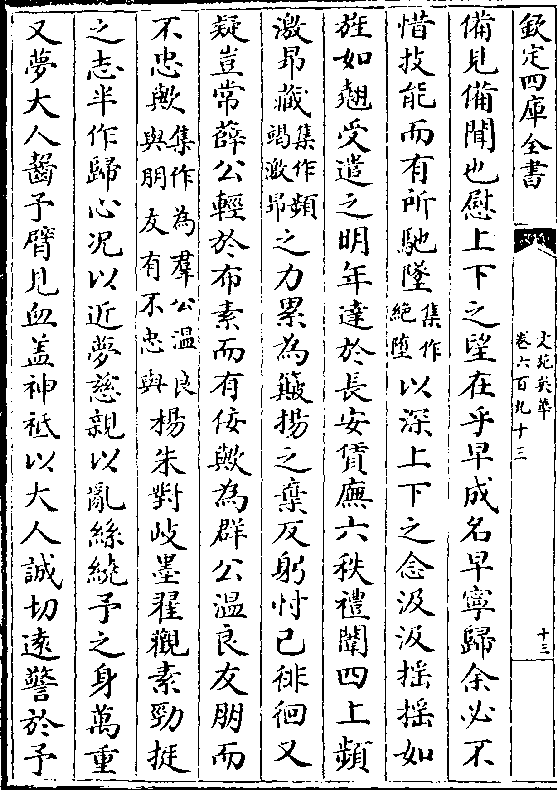 欽定四庫全書
文苑英華
卷六百九十三
十三
備見備聞也慰上下之望在乎早成名早寧歸余必不
惜技能而有所馳墜集作絶墮以深上下之念汲汲揺揺如
旌如翹受遣之明年達於長安賃廡六秩禮闈四上頻
激昻藏集作頻竭激昻之力累為簸揚之棄反躬忖己徘徊又
疑豈常薛公輕於布素而有佞歟為群公温良友朋而
不忠歟集作為羣公温良與朋友有不忠與楊朱對岐墨翟觀素勁挺
之志半作歸心况以近夢慈親以亂絲繞予之身萬重
又夢大人齧予臂見血盖神祇以大人誠切逺警於予